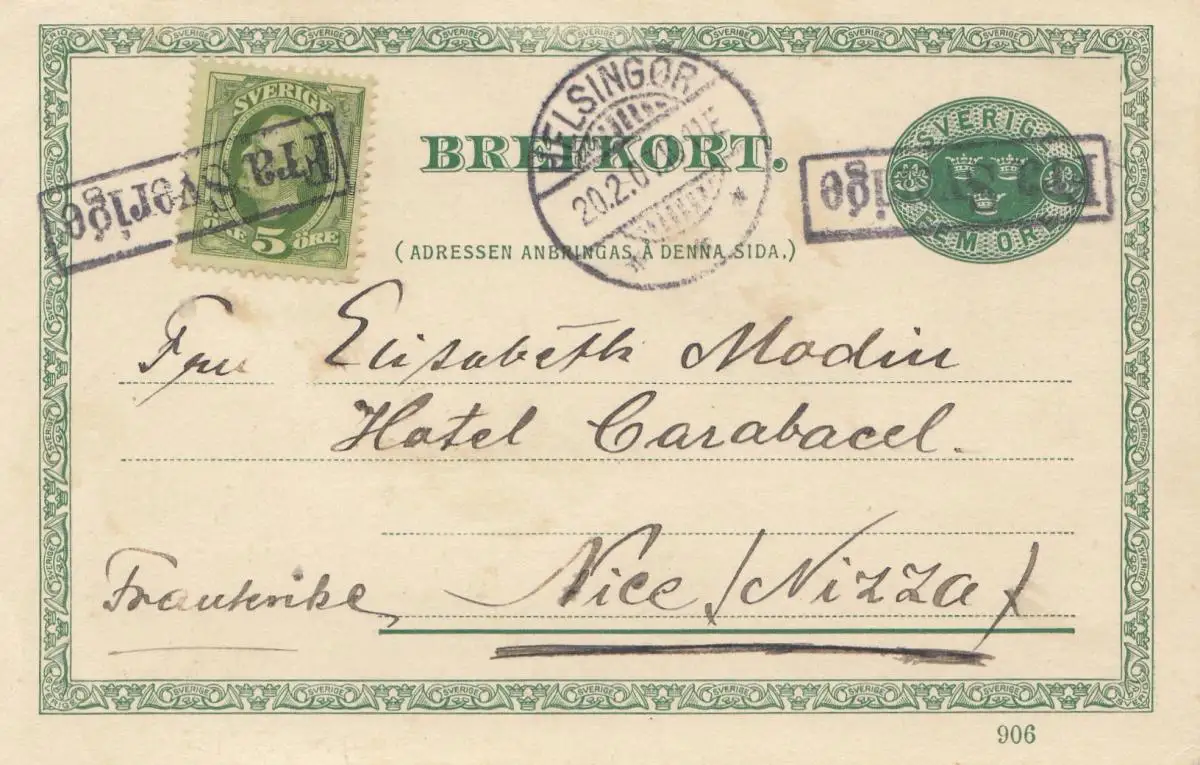 SVERIGE
5 ÖRE
Fra Sverige
BREFKORT.
HELSINGØR
20.2.0
SVERIGE
FEM ÖRE
Fra Sverige
(ADRESSEN ANBRINGAS Å DENNA SIDA.)
Fru Elisabeth Modin
Hotel Carabacel.
Frankrike, Nice (Nizza)
906